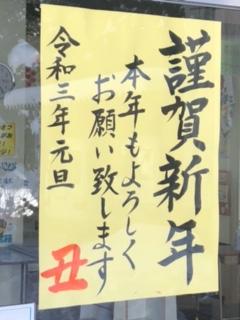 謹賀新年
本年もよろしく
お願い致します
令和三年元旦
丑